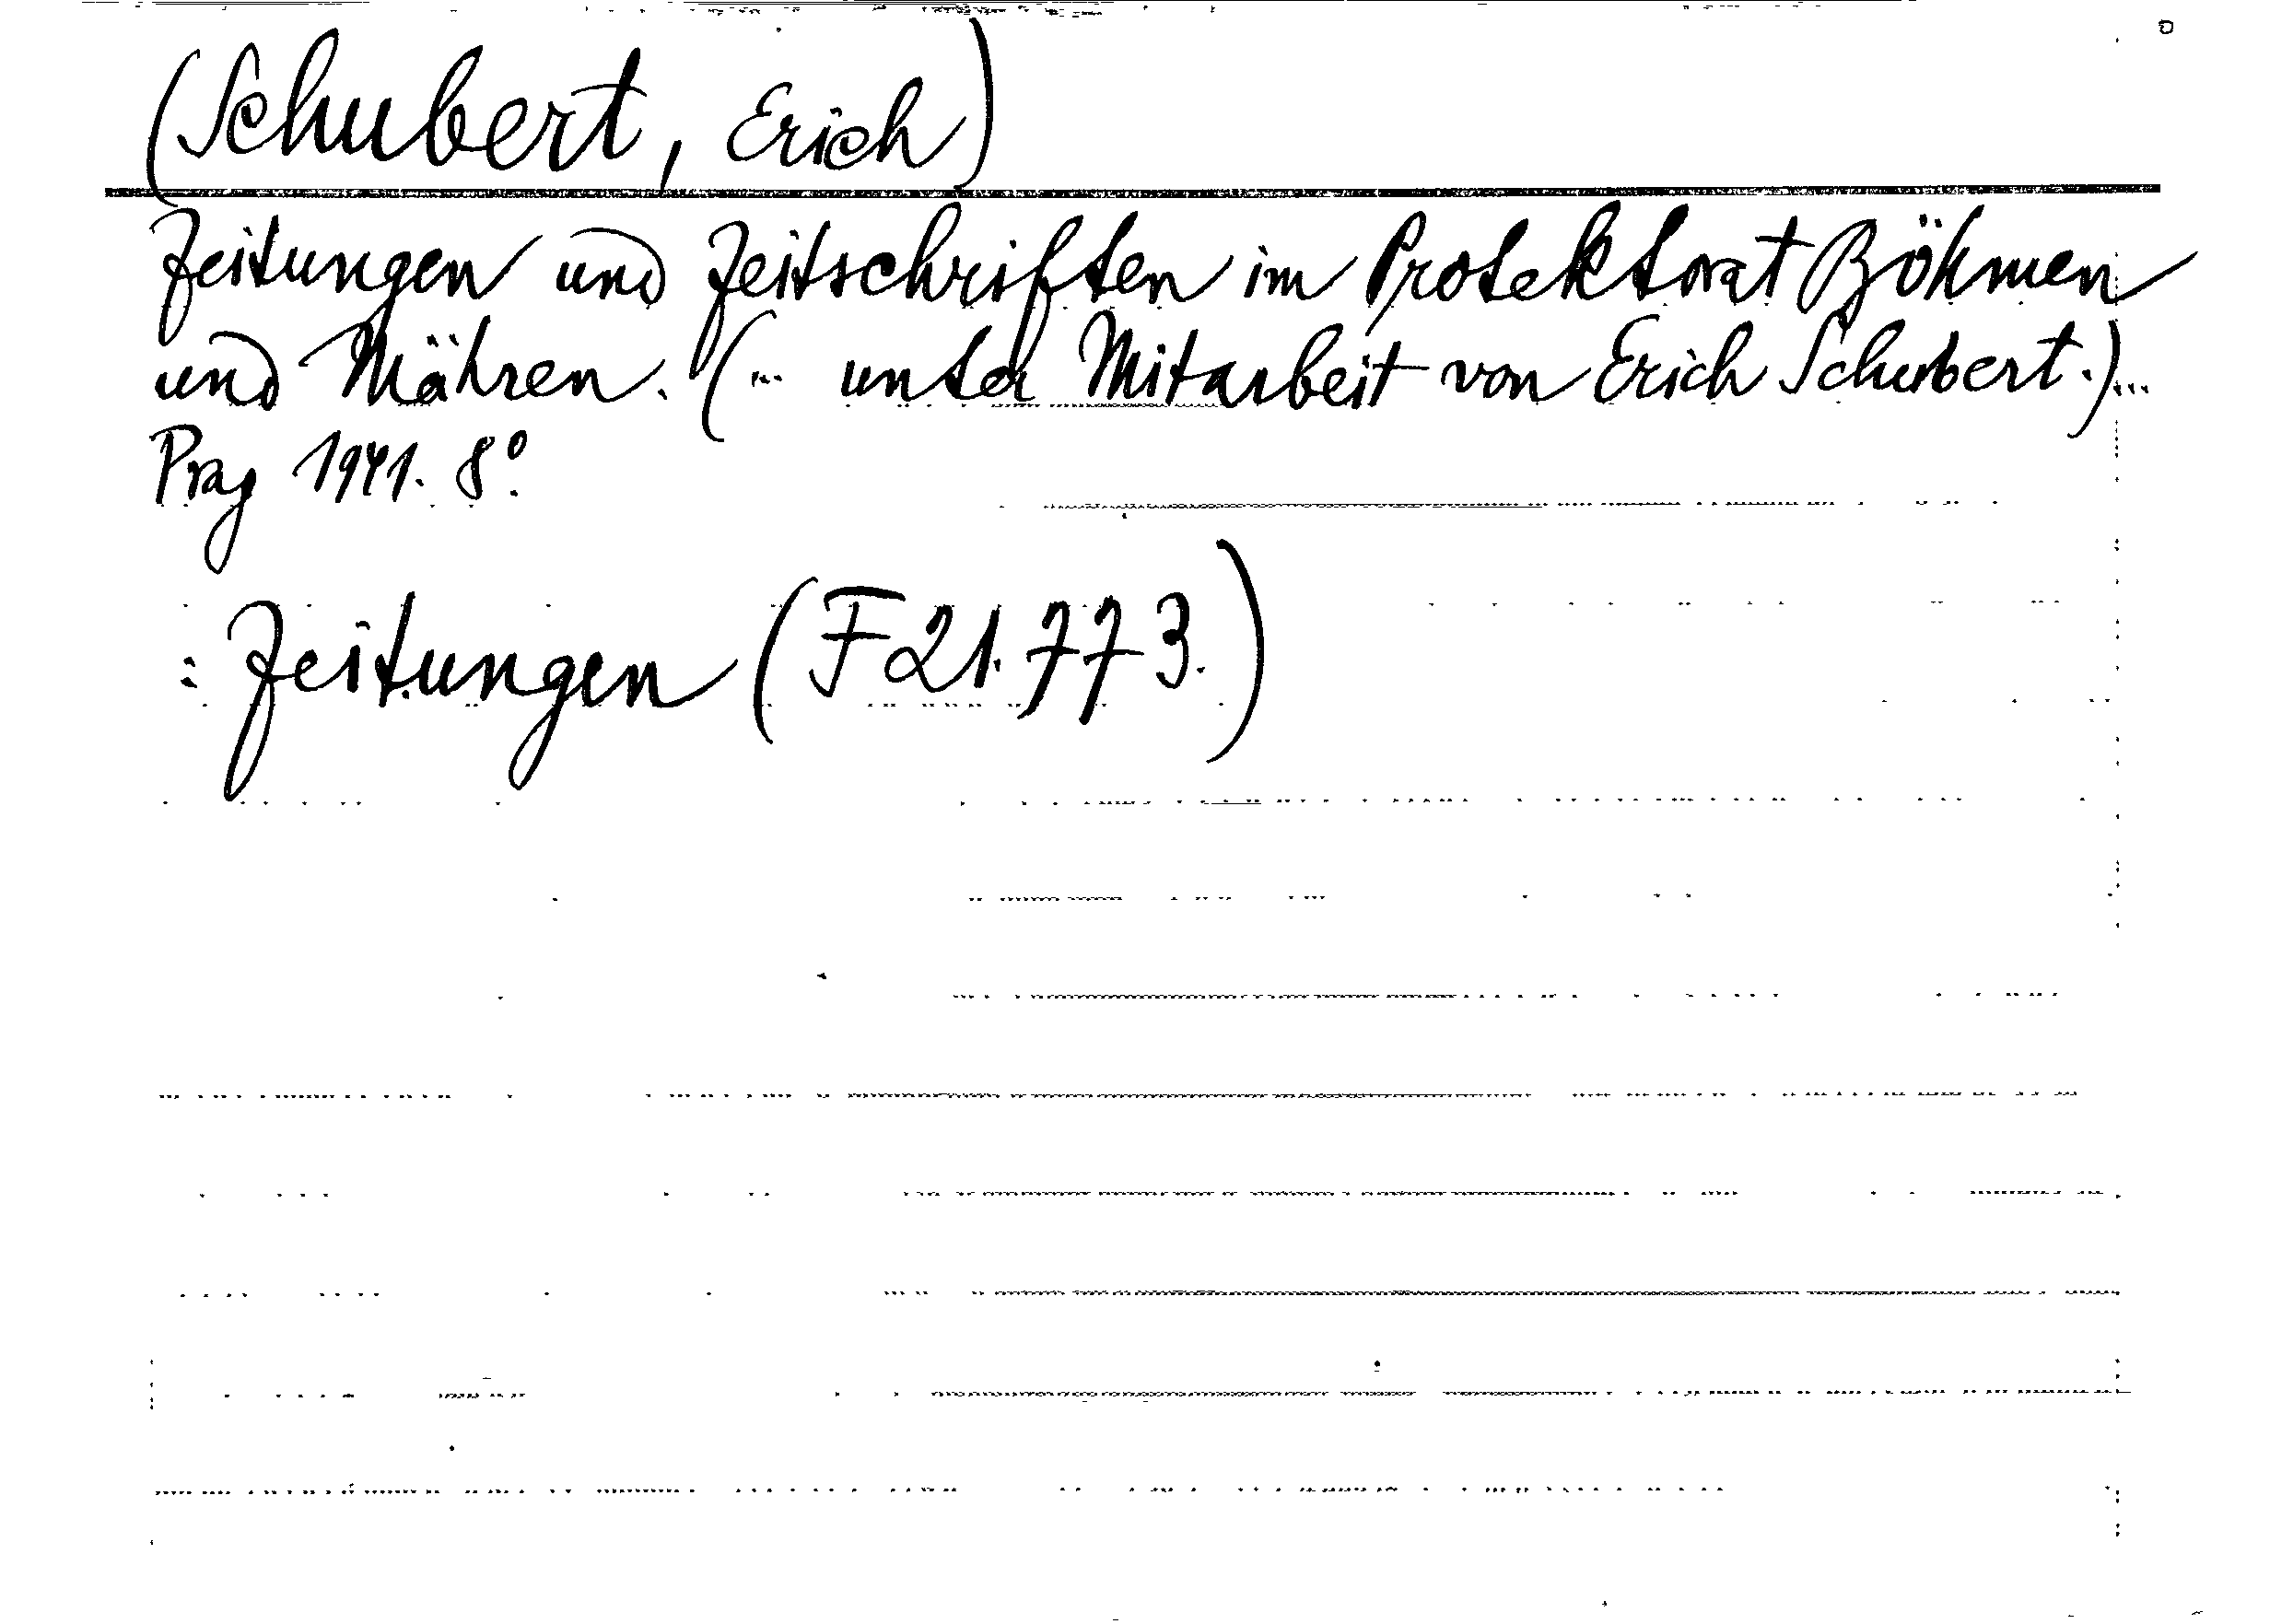 (Schubert, Erich)
Zeitungen und Zeitschriften im Protektorat Böhmen
und Mähren. (... unter Mitarbeit von Erich Schubert.)...
Prag 1941. 8°.
: Zeitungen (F 21.773.)